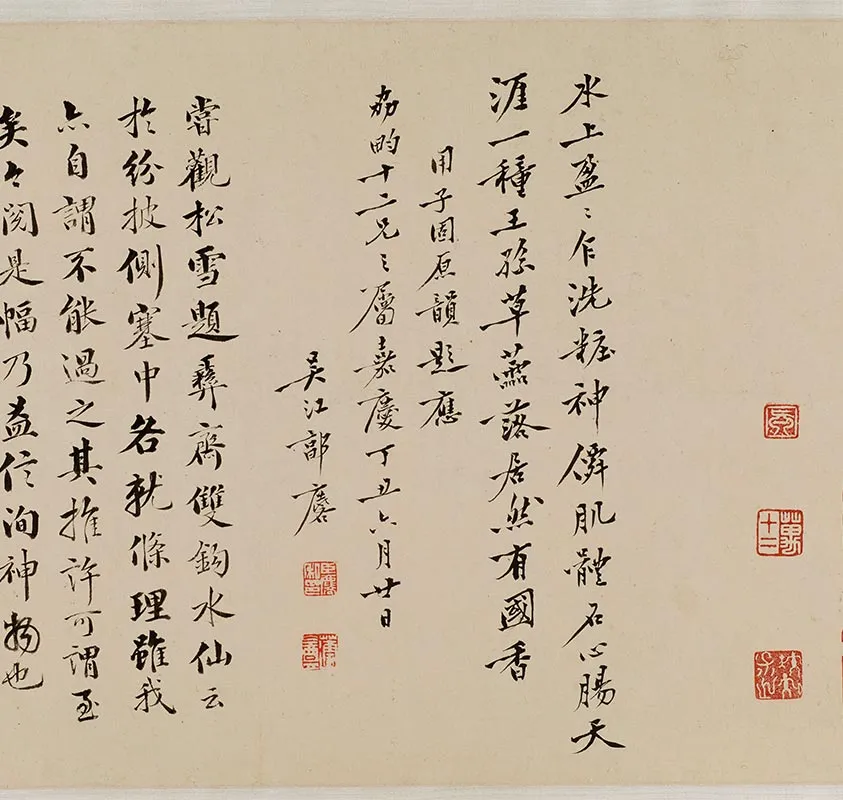 水上盈〻乍洗粧神僊肌體石心腸天
涯一種王孫草蕭落居然有國香
用子固原韻題應
芴畇十二兄之屬嘉慶丁丑六月廿日
吳江郭麐
嘗觀松雪題彝齋雙鉤水仙云
於紛披側塞中各就條理雖我
亦自謂不能過之其推許可謂至
矣今閱是幅乃益信洵神物也
十二